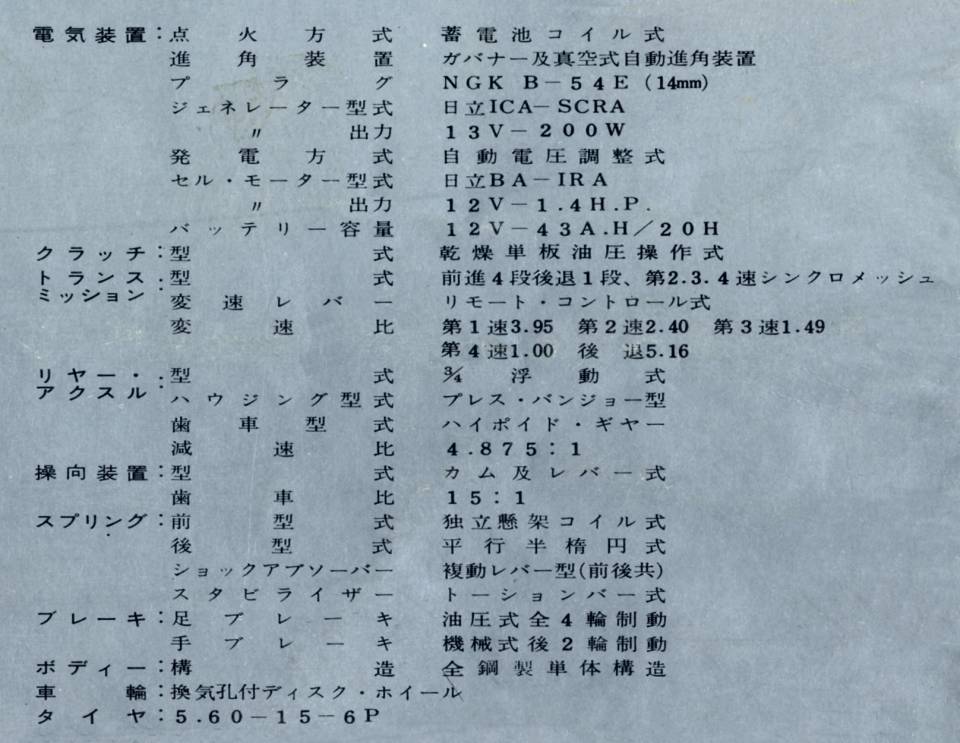 電気装置：点火方式　蓄電池コイル式
進角装置　ガバナー及真空式自動進角装置
プラグ　NGK B－54E（14mm）
ジェネレーター型式　日立ICA－SCRA
〃　出力　13V－200W
発電方式　自動電圧調整式
セル・モーター型式　日立BA－IRA
〃　出力　12V－1.4H.P.
バッテリー容量　12V－43A.H／20H
クラッチ：型式　乾燥単板油圧操作式
トランスミッション：型式　前進4段後退1段、第2.3.4速シンクロメッシュ
変速レバー　リモート・コントロール式
変速比　第1速3.95　第2速2.40　第3速1.49
第4速1.00　後退5.16
リヤー・アクスル：型式　¾浮動式
ハウジング型式　プレス・バンジョー型
歯車型式　ハイポイド・ギヤー
減速比　4.875：1
操向装置：型式　カム及レバー式
歯車比　15：1
スプリング：前型式　独立懸架コイル式
後型式　平行半楕円式
ショックアブソーバー　複動レバー型(前後共)
スタビライザー　トーションバー式
ブレーキ：足ブレーキ　油圧式全4輪制動
手ブレーキ　機械式後2輪制動
ボディー：構造　全鋼製単体構造
車輪：換気孔付ディスク・ホイール
タイヤ：5.60－15－6P